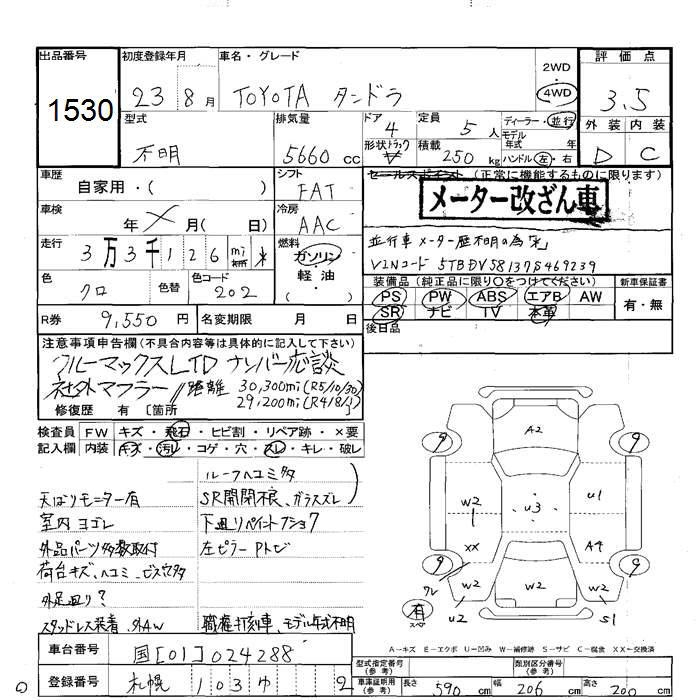 出品番号 初度登録年月 車名・グレード 2WD 評価点
1530 23 8月 TOYOTA タンドラ 4WD 3.5
型式 排気量 ドア 定員 ディーラー・並行 外装 内装
不明 5660 cc 4 5人 モデル年式 年 D C
形状 トラック 積載 250 kg ハンドル 左・右
車歴 シフト セールスポイント (正常に機能するものに限ります)
自家用・( ) FAT メーター改ざん車
車検 冷房
年 × 月( 日) AAC 並行車 メーター歴不明の為「*」
走行 燃料 VINコード 5TBDV58137S469239
3万3千126 mi * ガソリン 装備品 (純正品に限り○をつけてください) 新車保証書
色 色替 色コード 軽油 PS PW ABS エアB AW 有・無
クロ 202 ( ) SR ナビ TV 本革
R券 9,550円 名変期限 月 日 後日品
注意事項申告欄(不具合内容等は具体的に記入して下さい)
クルーマックスLTD ナンバー応談
社外マフラー 距離 30,300mi(R5/10/30)
29,200mi(R4/8/1)
修復歴 有 〔箇所
検査員 FW キズ・飛石・ヒビ割・リペア跡・×要
記入欄 内装 キズ・汚レ・コゲ・穴・スレ・キレ・破レ
ルーフヘコミ多
天ばりモニター有 SR開閉不良、ガラスズレ
室内ヨゴレ 下廻りペイントアンコ7
外品パーツ多数取付 左ピラーPトビ
荷台キズ、ヘコミ、ビス穴多
外足廻り?
スタッドレス装着、外AW 職権打刻車、モデル年式不明
A2
9 9
W2 U1
U3
XX A4
9 9
W2 W2 W2
有 スペア U2 S1
A−キズ E−エクボ U−凹み W−補修跡 S−サビ C−腐食 XX−交換済
車台番号 国[01]024288 型式指定番号(参考) 類別区分番号(参考)
登録番号 札幌 103 ゆ 2 車庫証明用(参考) 長さ 590cm 幅 206cm 高さ 200cm